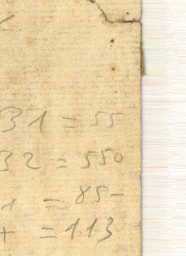 31 = 55
32 = 550
1 = 85-
+ = 113